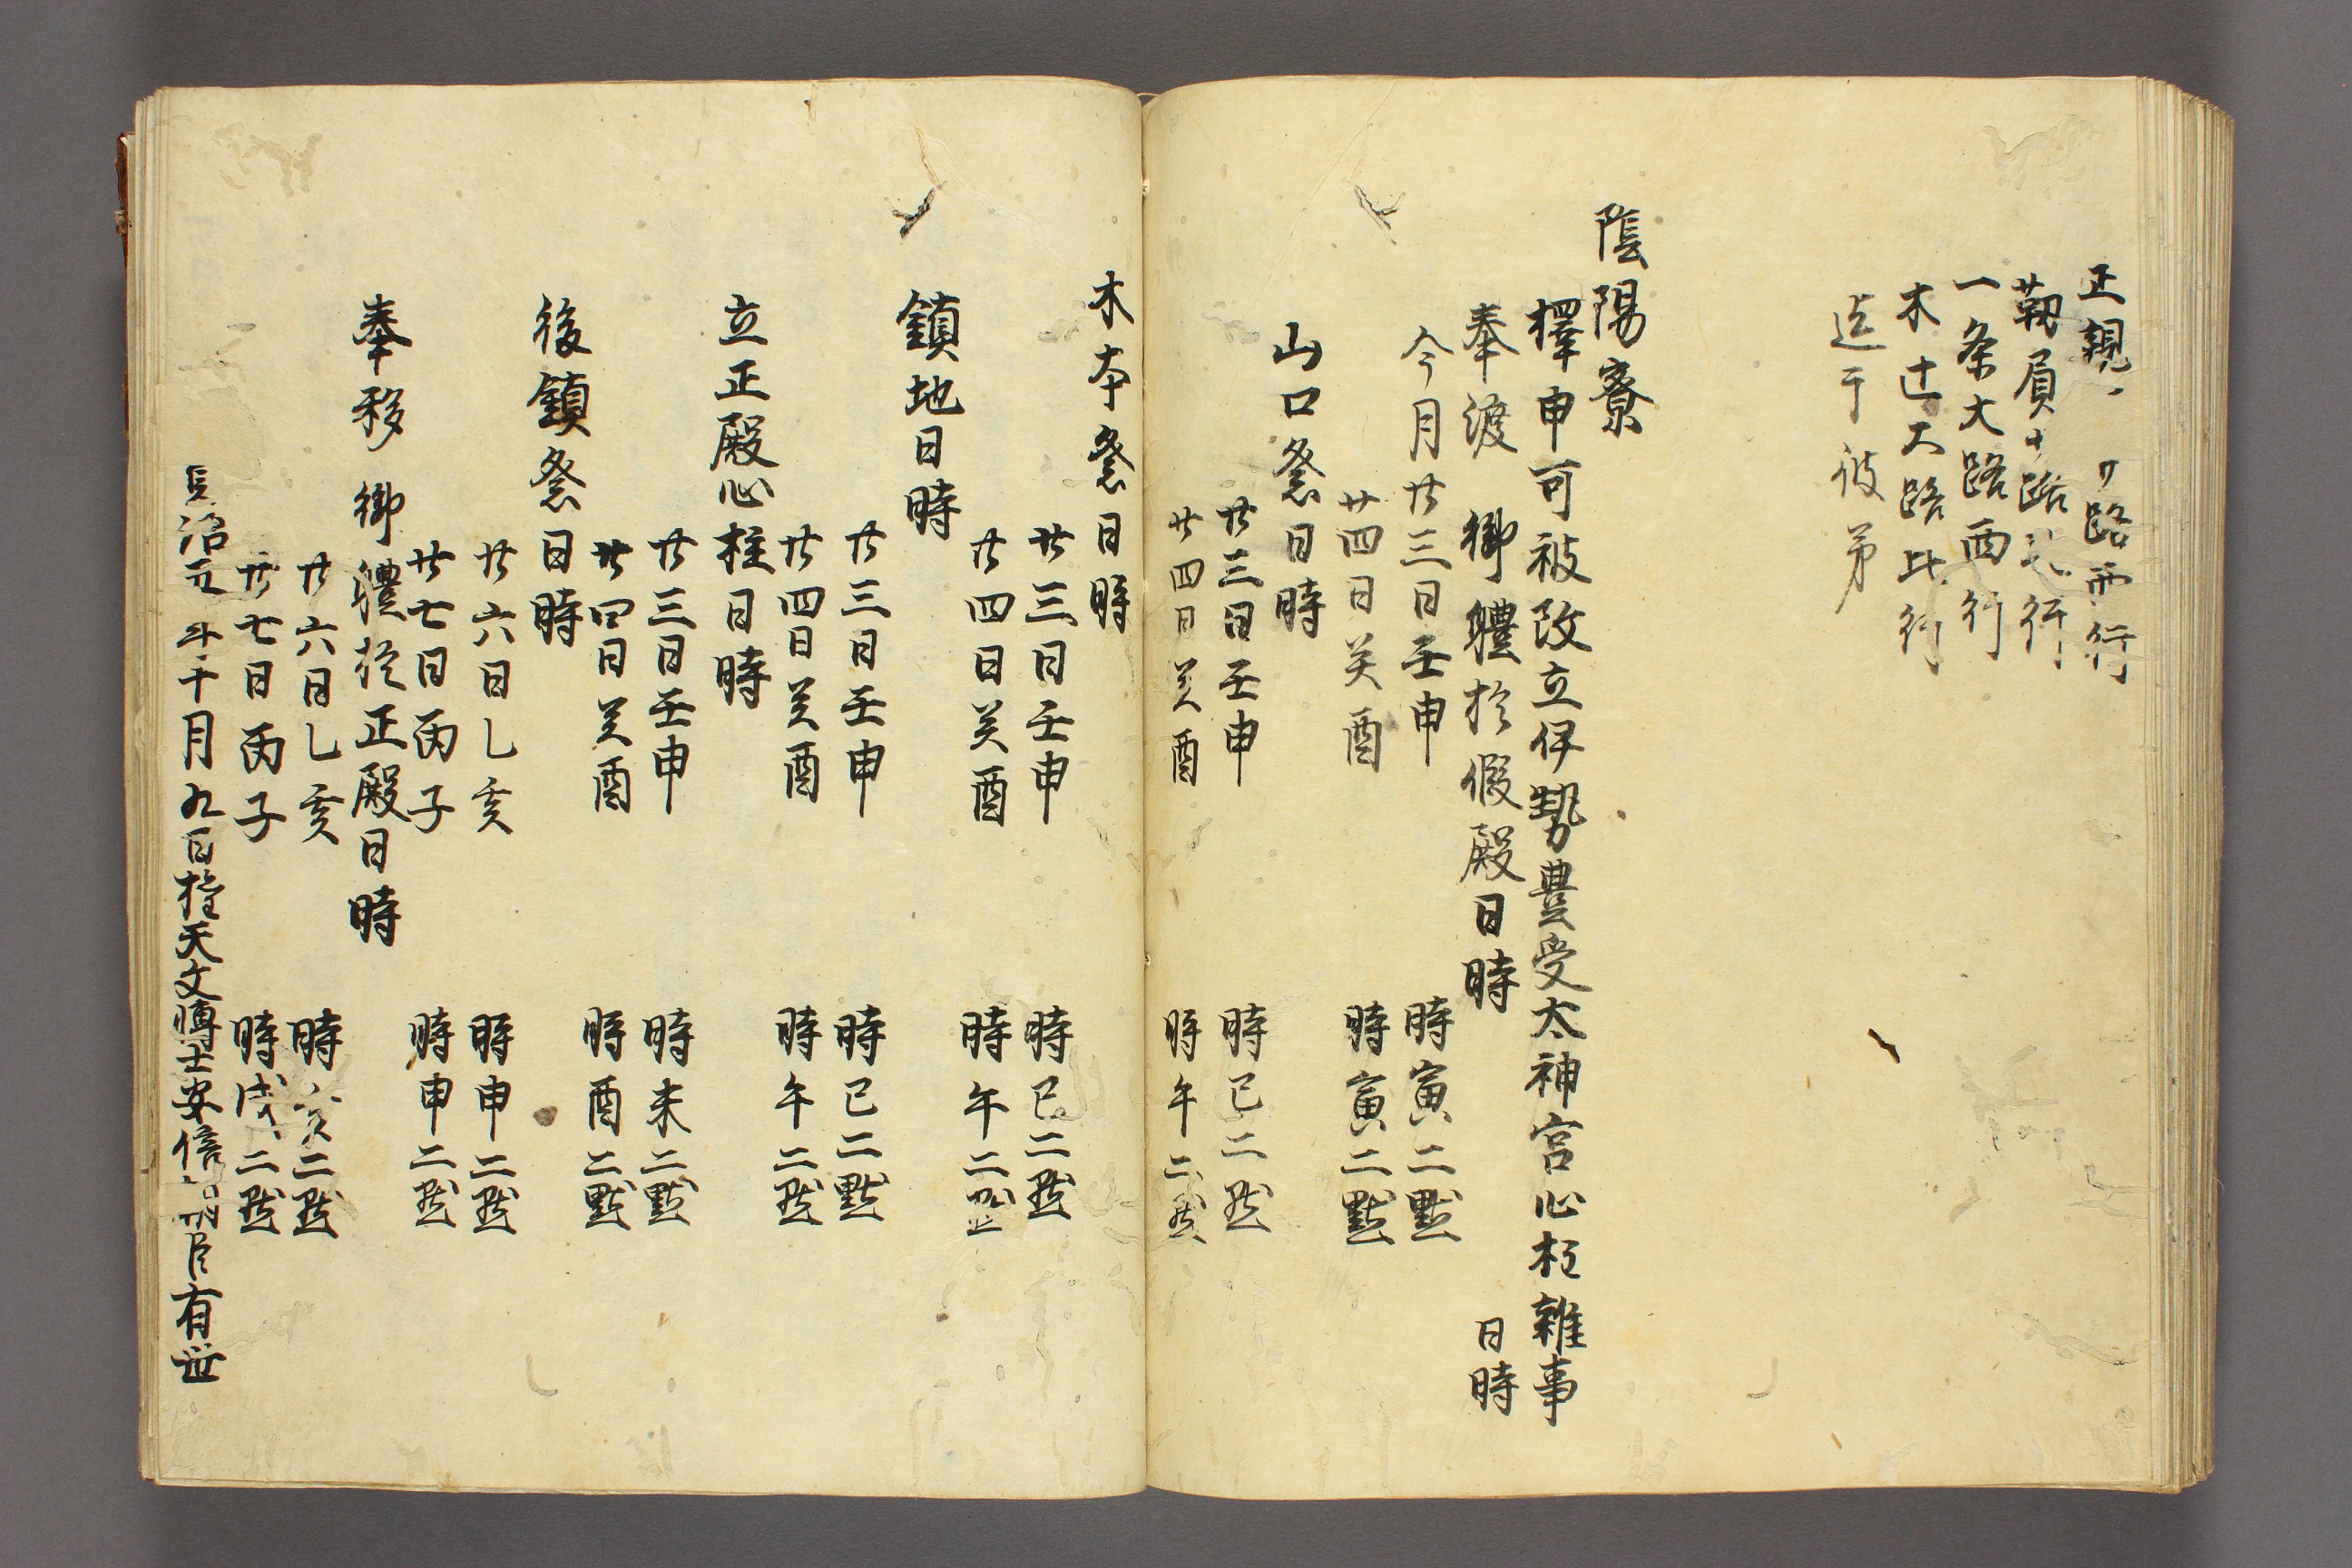 正親 路西行
靱屓 路 行
一条大路西行
木辻大路北行
迄于彼第
陰陽寮
擇申可被改立伊勢豊受太神宮心柱雜事日時
奉渡 御體於假殿日時
今月廿三日壬申 時寅二點
廿四日癸酉 時寅二點
山口祭日時
廿三日壬申 時巳二點
廿四日癸酉 時午二點
木本祭日時
廿三日壬申 時巳二點
廿四日癸酉 時午二點
鎮地日時
廿三日壬申 時巳二點
廿四日癸酉 時午二點
立正殿心柱日時
廿三日壬申 時未二點
廿四日癸酉 時酉二點
後鎮祭日時
廿六日乙亥 時申二點
廿七日丙子 時申二點
奉移 御體於正殿日時
廿六日乙亥 時亥二點
廿七日丙子 時戌二點
貞治元年十月九日權天文博士安倍朝臣有世